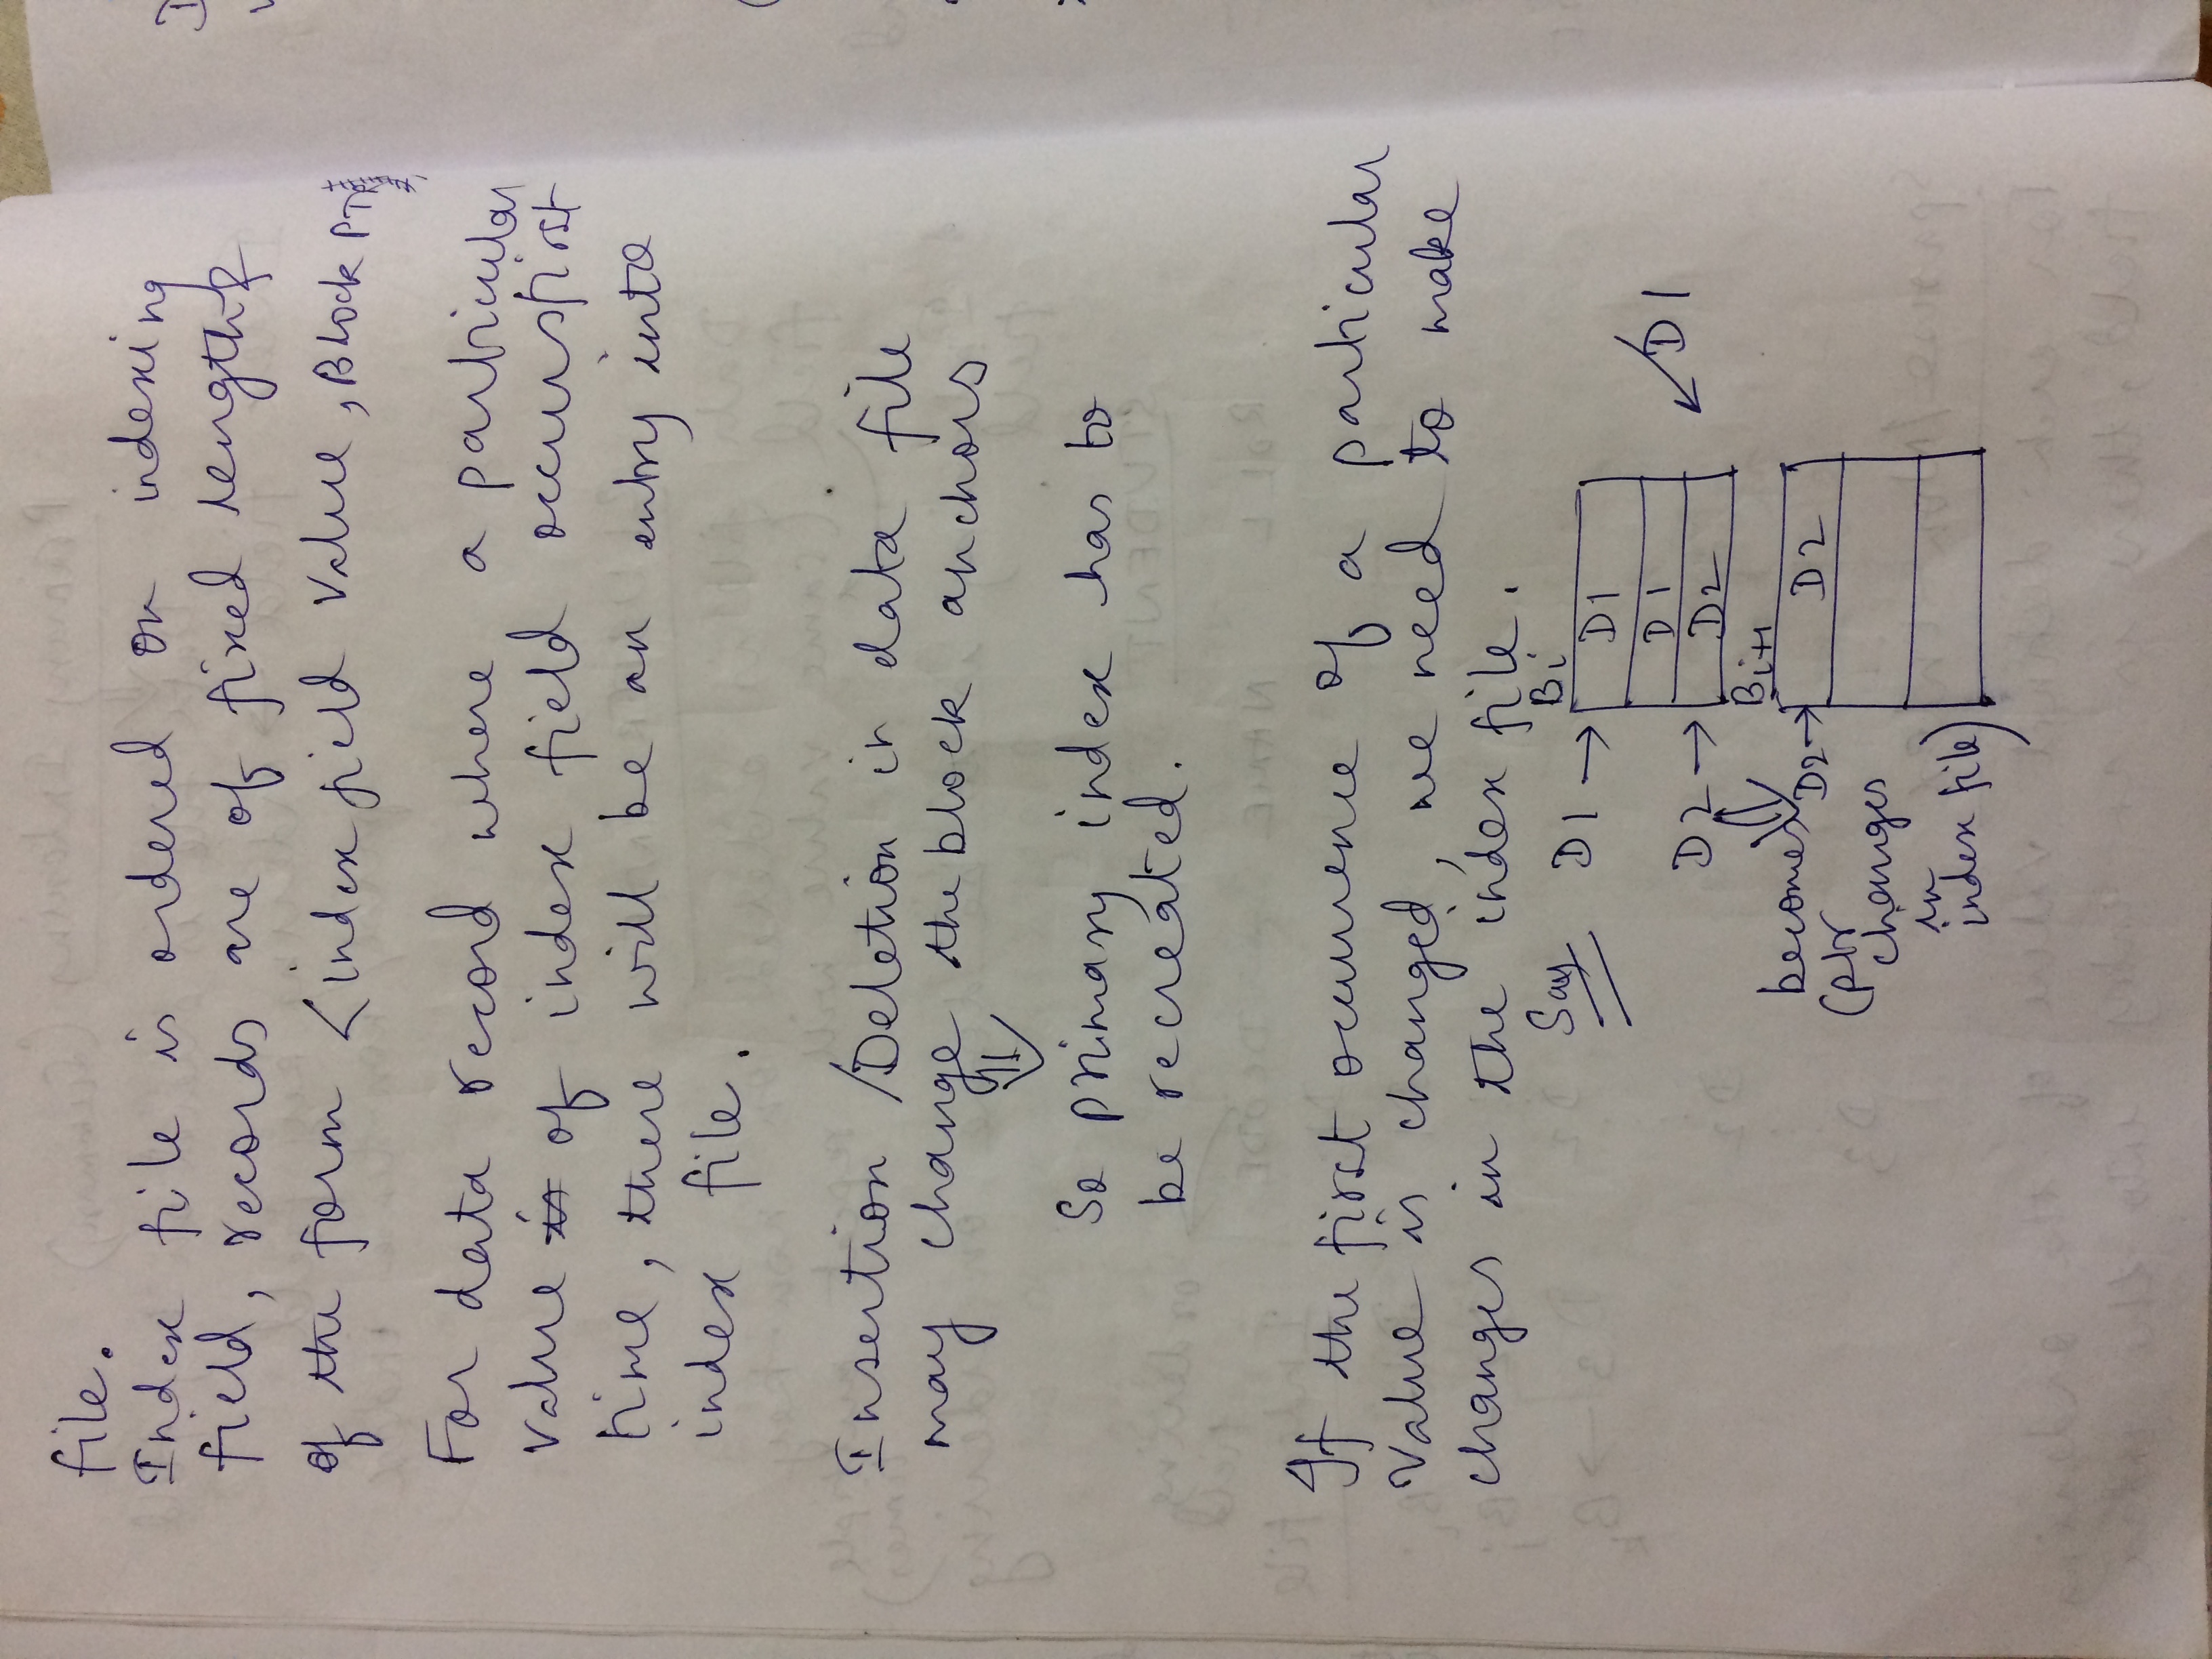 file.
Index file is ordered on indexing
field, records are of fixed length &
of the form <index field value, Block PTR
For data record where a particular
value is of index field occurs first
time, there will be an entry into
index file.
Insertion /Deletion in data file
may change the block anchors
⇓
So primary index has to
be recreated.
If the first occurrence of a particular
value is changed, we need to make
changes in the index file.
Say D1 → Bi
D1
D1
D2 → D2
↙ D1
Bi+1
becomes D2 → D2
(ptr
changes
in
index file)